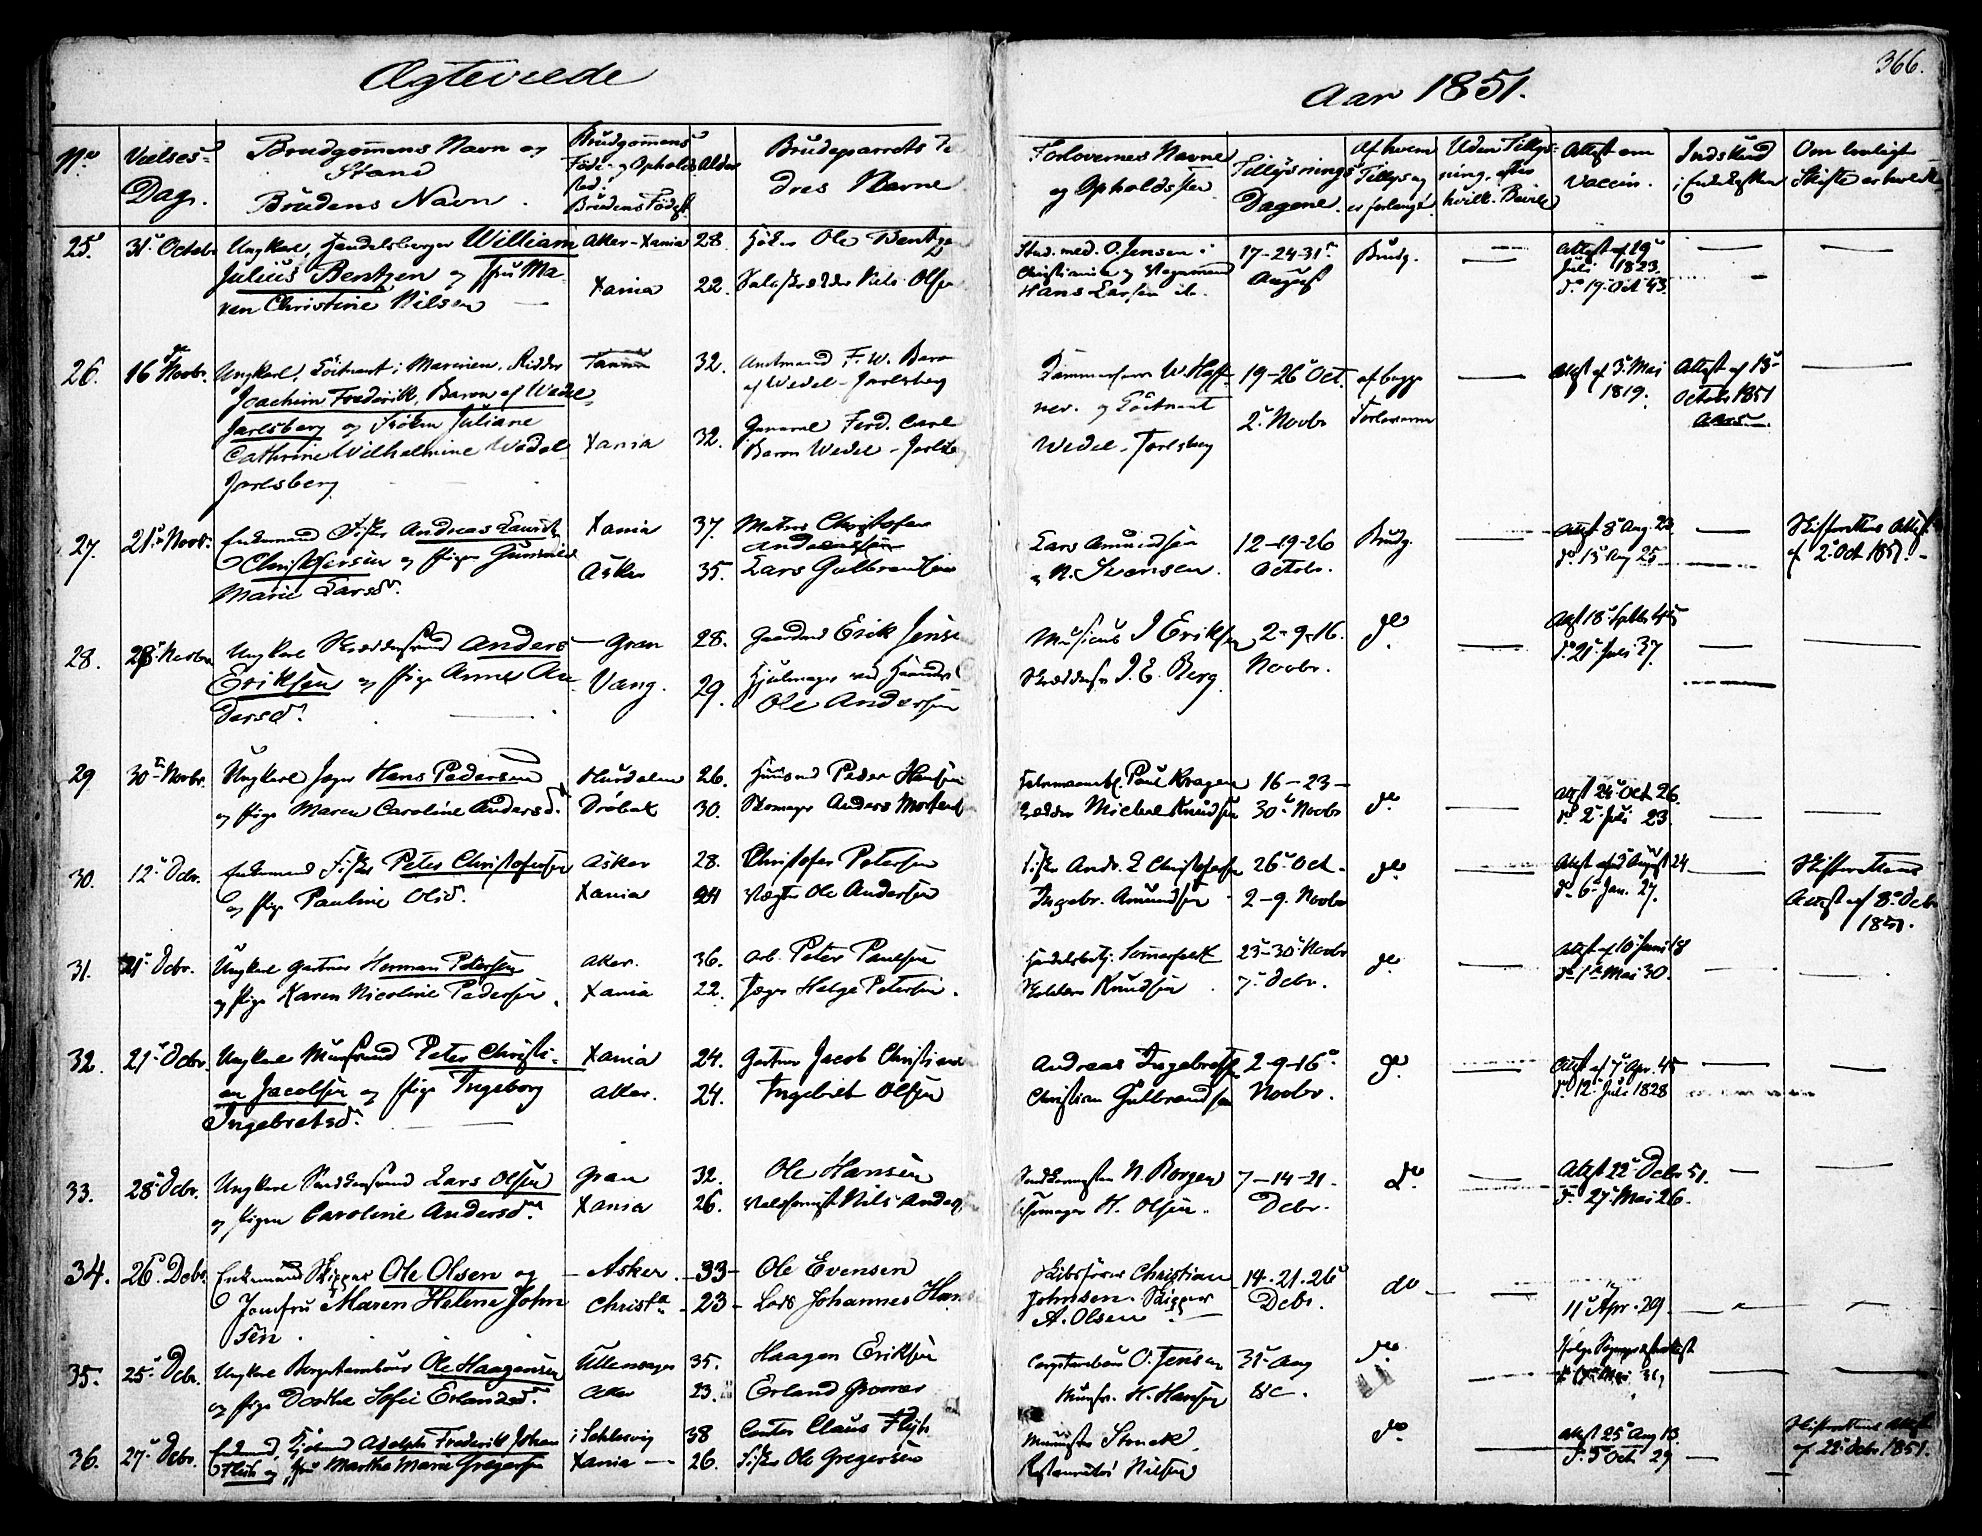 Ægteviede
Aar 1851.
366.
No
Vielses-
Dag.
Brudgommens Navn og
Stand
Brudens Navn.
Brudgommens
Føde- og Opholds
sted.
Brudens Fødest.
Alder
Brudeparrets Fæ
dres Navne
Forlovernes Navne
og Opholdssted
Tillysnings
Dagene.
Af hvem
Tillysng
er forlangt.
Uden Tillys-
ning, efter
hvilk. Bevill.
Attest om
Vaccin.
Indskud
i Enkekassen
Om lovligt
Skifte er holdt
25.
31. Octobr
Ungkarl, Handelsborger William
Julius Bentzen og Jfru Ma-
ren Christine Nilsen
Aker - Xania
Xania
28.
22.
Ole Bentzen
Nils Olsen
Stud. med. O. Jensen i
Christiania og
Hans Larsen ib.
17-24-31
August
Brudg.
Attest af 19
Juli 1823.
do 17 Oct 43.
26.
16 Novbr.
Ungkarl, Løitnant i Marinen, Ridder
Joachim Frederik, Baron af Wedel-
Jarlsberg og Frøken Juliane
Cathrine Wilhelmine Wedel
Jarlsberg
Xania
32.
32.
Amtmand F. W. Baron
af Wedel-Jarlsberg
General Ferd. Carl
Baron Wedel-Jarlsb
Kammerherre W. Haff-
ner. og Løitnant
Wedel-Jarlsberg
19-26 Oct.
2. Novbr
af begge
Forloverne
Attest af 3 Mai
1819.
Attest af 13
October 1851
27.
21 Novbr.
Enkemand Fisker Andreas Laurits
Christofersen og Pigen Gunnild
Marie Larsd.
Xania
Asker
37.
35.
Matros Christofer
Andersen
Lars Gulbrandsen
Lars Amundsen
og N. Svensen.
12-19-26
Octobr.
Brudg.
Attest 8 Aug. 22
do 15 Aug 25
Skifterettens Attest
af 2 Oct 1851.
28.
28 Novbr
Ungkarl Skræddersvend Anders
Eriksen og Pige Anne An-
dersd.
Gran
Vang.
28.
29.
Gaardmd Erik Jense
Hjulmager
Ole Andersen
Musicus J Eriksen
Skræddersv J. E. Berg.
2-9-16.
Novbr.
do
Attest 18 Septbr 45
do 21 Juli 37.
29
30 Novbr.
Ungkarl Jæger Hans Pedersen
og Pige Maren Caroline Andersd.
Hurdalen
Drøbak
26.
30.
Huusmd Peder Hansen
Skomager Anders Mortens
Paul Kragen
Michael Knudsen
16-23-
30 Novbr
do.
Attest 24 Oct 26.
do 2 Juli 23.
30.
12 Dcbr.
Enkemand Fisker Peter Christophersen
og Pige Pauline Olsd.
Asker
Xania
28.
24
Christofer Petersen
Vægter Ole Andersen
Fisker Andr. L Christofersen
Ingebr. Amundsen
26 Oct.
2-9. Novbr
do
August 24
do 6 Jan. 27.
Skifterettens
Attest af 8 Dcbr
1851.
31.
21 Dcbr.
Ungkarl Gartner Herman Petersen
og Pige Karen Nicoline Pedersen.
Aker.
Xania
36.
22.
Arb. Peter Paulsen
Jæger Helge Petersen.
Handelsbetj. Sommerfeldt
Knudsen
23-30 Novbr
7. Dcbr.
do.
Attest af 10 Juni 18
do 1 Mai 30.
32.
21 Dcbr
Ungkarl Muursvend Peter Christi-
an Jacobsen og Pige Ingeborg
Ingebretsd.
Xania
Aker.
24.
24.
Gartner Jacob Christians
Ingebret Olsen
Andreas Ingebretsen
Christian Gulbrandsen
2-9-16
Novbr.
do.
Attest af 7 Apr. 45
do 12 Juli 1828
33.
28 Dcbr.
Ungkarl Snedkersvend Lars Olsen
og Pigen Caroline Andersd.
Gran
Xania
32.
26.
Ole Hansen
Nils Anders
Snedkermester N. Borgen
H. Olsen.
7-14-21.
Dcbr.
do.
Attest 22 Dcbr 51.
do. 27 Mai 26.
34.
26 Dcbr.
Enkemand Skipper Ole Olsen og
Jomfru Maren Helene John
sen.
Asker.
Christa
33
23
Ole Evensen
Lars Johannes Hans
Skibsfører Christian
Johnsen. Skipper
A. Olsen
14. 21. 26
Dcbr.
do
11 Apr. 29.
35.
25 Dcbr.
Ungkarl Ole Haagensen
og Pige Dorthe Sofie Erlandsd.
Ullensager
Aker
35.
23.
Haagen Eriksen
Erland
O. Jensen
Muursv. H. Hansen
31 Aug
&c.
do
36.
27 Dcbr.
Enkemd, Kjøbmd Adolph Frederik Johan
og Jfru Marthe Marie Gregersen
i Schlesvig
Xania
38
26.
Claus
Fisker Ole Gregersen
Restauratør Nilsen
do.
Attest 25 Aug 13
do. 5 Oct 29
Skifterettens Attest
af 22 Dcbr 1851.